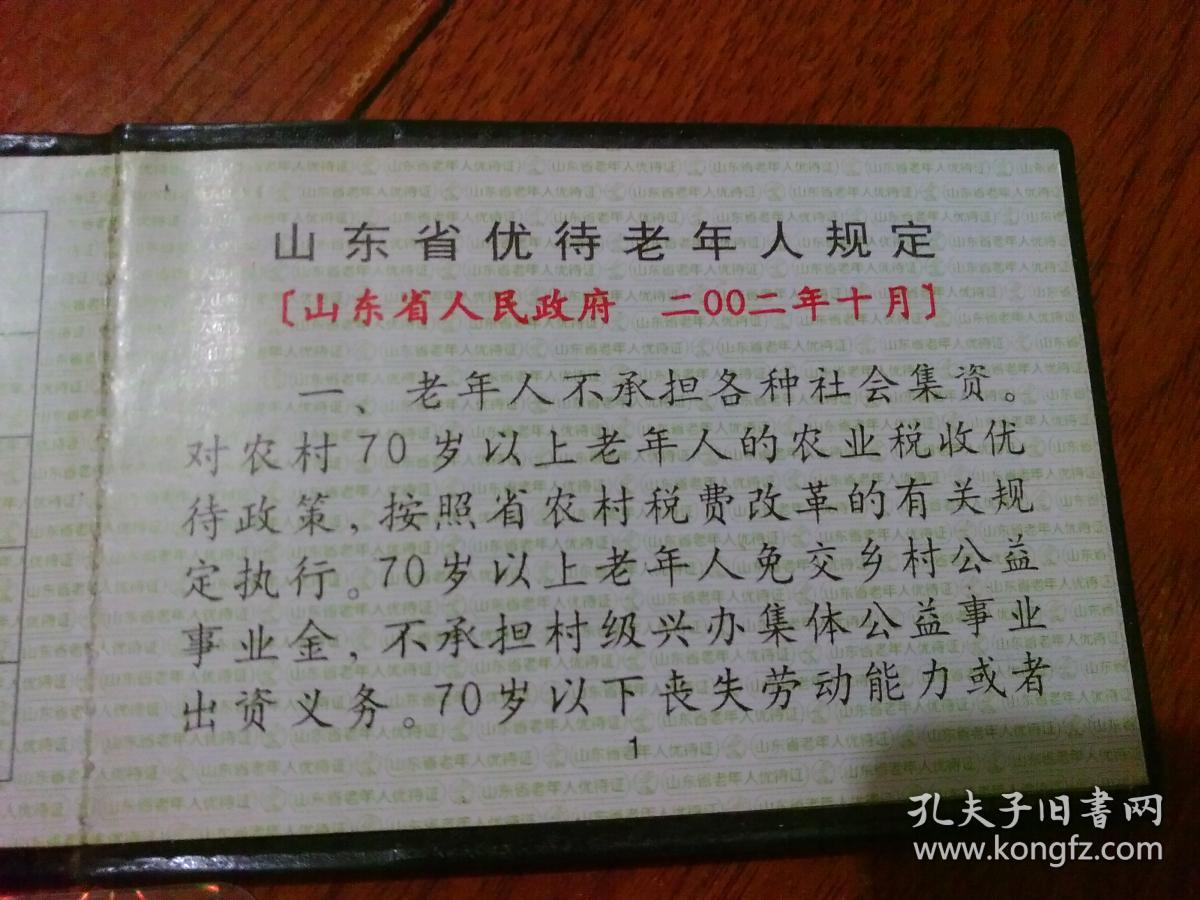 山东省优待老年人规定
〔山东省人民政府 二〇〇二年十月〕
一、老年人不承担各种社会集资。
对农村70岁以上老年人的农业税收优
待政策，按照省农村税费改革的有关规
定执行。70岁以上老年人免交乡村公益
事业金，不承担村级兴办集体公益事业
出资义务。70岁以下丧失劳动能力或者
1
孔夫子旧書网
www.kongfz.com
山东省老年人优待证